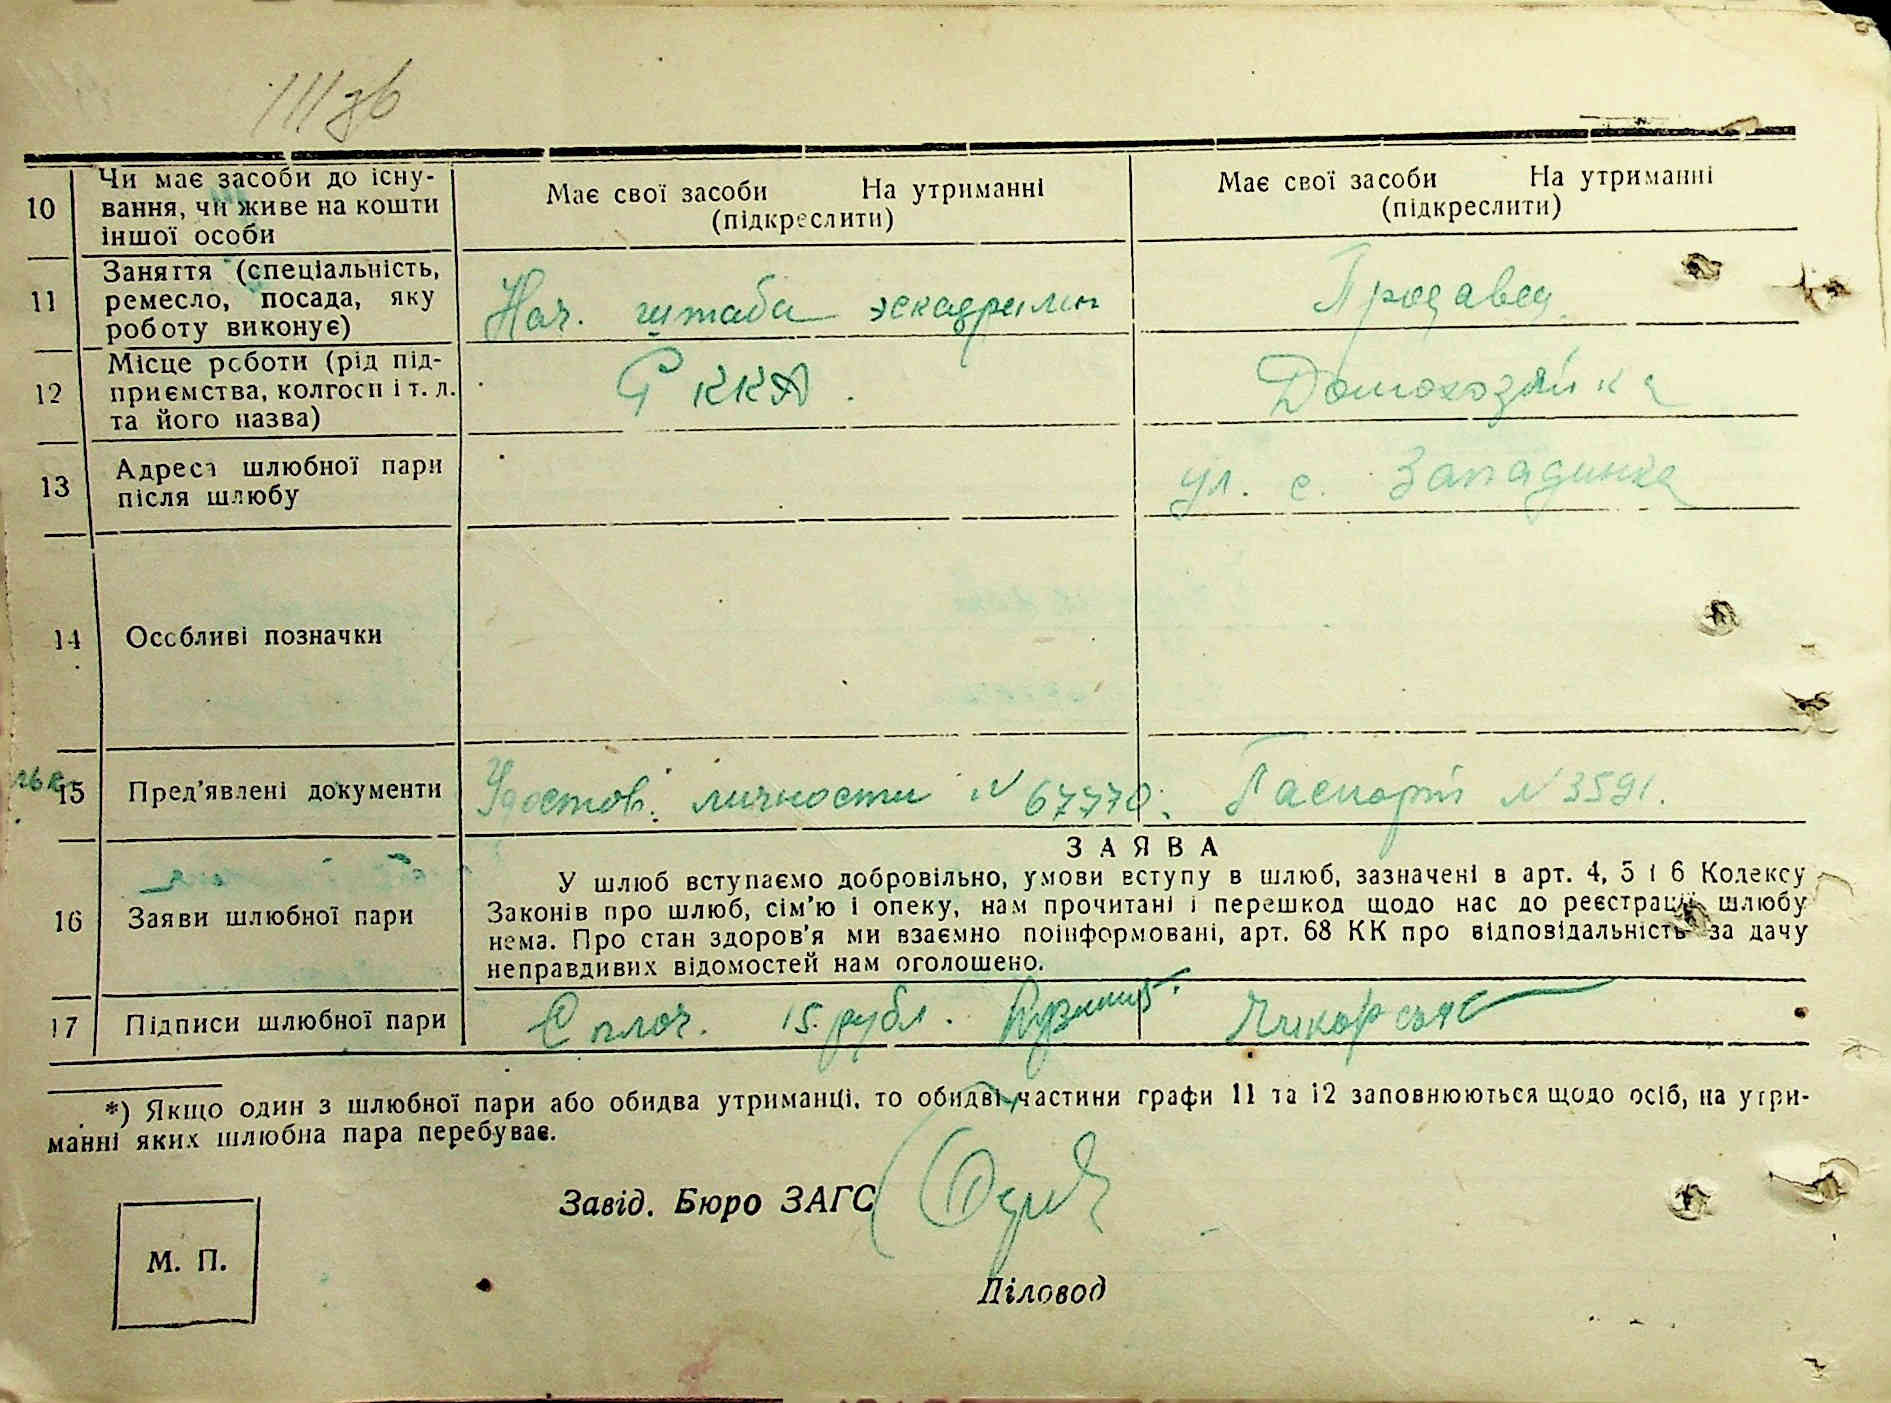 111зв
10
Чи має засоби до існу-
вання, чи живе на кошти
іншої особи
Має свої засоби На утриманні
(підкреслити)
Має свої засоби На утриманні
(підкреслити)
11
Заняття (спеціальність,
ремесло, посада, яку
роботу виконує)
Нач. штаба эскадрильи
Продавец
12
Місце роботи (рід під-
приємства, колгосп і т. д.
та його назва)
РККА.
Домохозяйка
13
Адреса шлюбної пари
після шлюбу
ул. с. Западинка
14
Особливі позначки
15
Пред'явлені документи
Удостов. личности N 67770.
Паспорт N 3591.
16
Заяви шлюбної пари
ЗАЯВА
У шлюб вступаємо добровільно, умови вступу в шлюб, зазначені в арт. 4, 5 і 6 Кодексу
Законів про шлюб, сім'ю і опеку, нам прочитані і перешкод щодо нас до реєстрації шлюбу
нема. Про стан здоров'я ми взаємно поінформовані, арт. 68 КК про відповідальність за дачу
неправдивих відомостей нам оголошено.
17
Підписи шлюбної пари
Сплоч. 15 рубл.
*) Якщо один з шлюбної пари або обидва утриманці, то обидві частини графи 11 та 12 заповнюються щодо осіб, на утри-
манні яких шлюбна пара перебуває.
Завід. Бюро ЗАГС
М. П.
Діловод